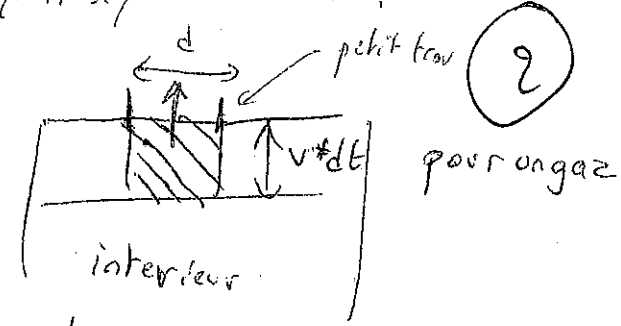 d
petit trou
2
v*dt
pour un gaz
interieur